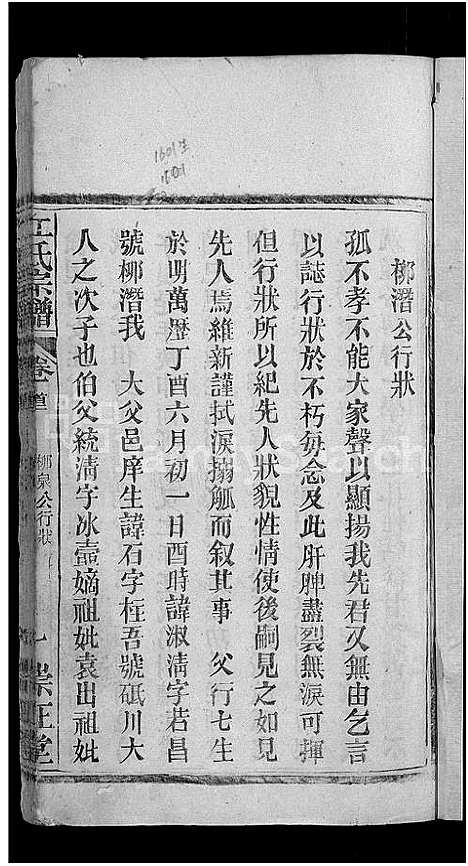 柳潛公行狀
孤不孝不能大家聲以顯揚我先君又無由乞言
以誌行狀於不朽每念及此肝脾盡裂無淚可揮
但行狀所以紀先人狀貌性情使後嗣見之如見
先人焉維新謹拭淚搦觚而叙其事 父行七生
於明萬歷丁酉六月初一日酉時諱淑淸字若昌
號柳潛我 大父邑庠生諱石字柱吾號砥川大
人之次子也伯父統淸字冰壺嫡祖妣袁出祖妣
江氏宗譜 卷首 柳泉公行狀 一 崇正堂
FamilySearch